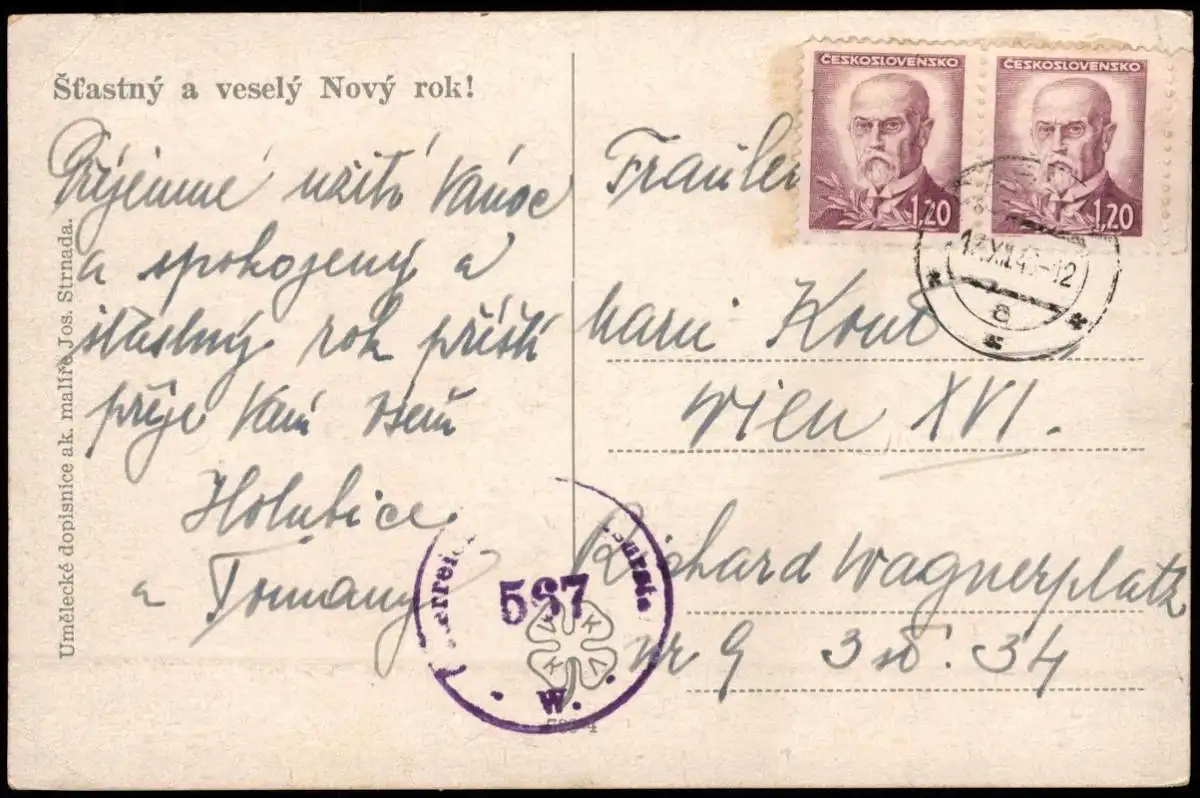 Šťastný a veselý Nový rok!
Příjemné užití Vánoc
a spokojený a
šťastný rok příští
přeje Vám všem
Holubice
a Tomany
Umělecké dopisnice ak. malíře Jos. Strnada.
ČESKOSLOVENSKO
1,20
ČESKOSLOVENSKO
1,20
XII
a
Fraulei
Wien XVI.
Richard Wagnerplatz
nr 9 3 34
567
W.